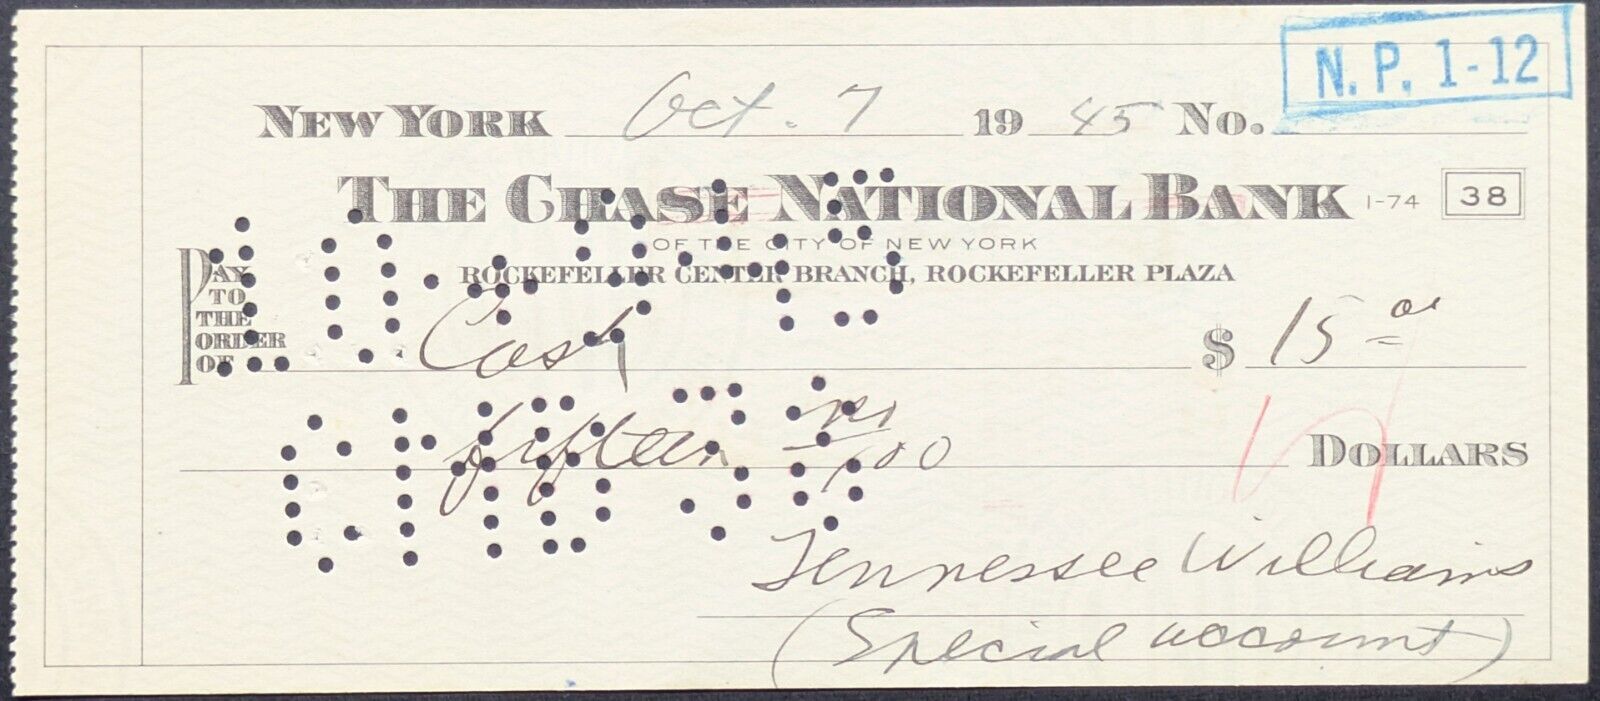 N. P. 1-12
NEW YORK Oct. 7 1945 No.
THE CHASE NATIONAL BANK 1-74 38
OF THE CITY OF NEW YORK
ROCKEFELLER CENTER BRANCH, ROCKEFELLER PLAZA
PAY TO THE ORDER OF Cash $ 15 00
fifteen no/100 DOLLARS
Tennessee Williams
(Special account)